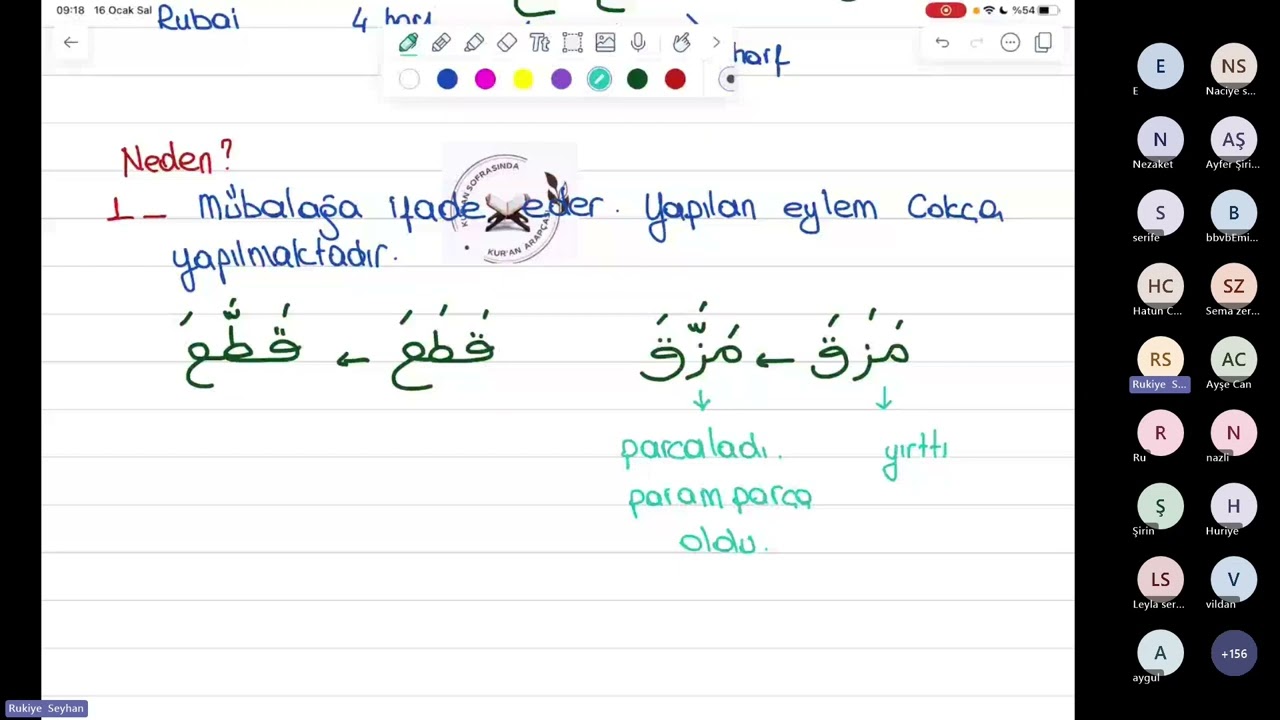 09:18 16 Ocak Sal
%54
Rubai 4 harf
harf
Neden?
1 _ Mübalağa ifade eder. Yapılan eylem Cokça
yapılmaktadır.
KUR'AN SOFRASINDA
KUR'AN ARAPÇASI
مَزَقَ ← مَزَّقَ
قَطَعَ ← قَطَّعَ
yırttı
parcaladı.
param parça
oldu.
E
E
NS
Naciye s...
N
Nezaket
AŞ
Ayfer Şiri...
S
serife
B
bbvbEmi...
HC
Hatun C...
SZ
Sema zer...
RS
Rukiye S...
AC
Ayşe Can
R
Ru
N
nazli
Ş
Şirin
H
Huriye
LS
Leyla ser...
V
vildan
A
aygul
+156
Rukiye Seyhan